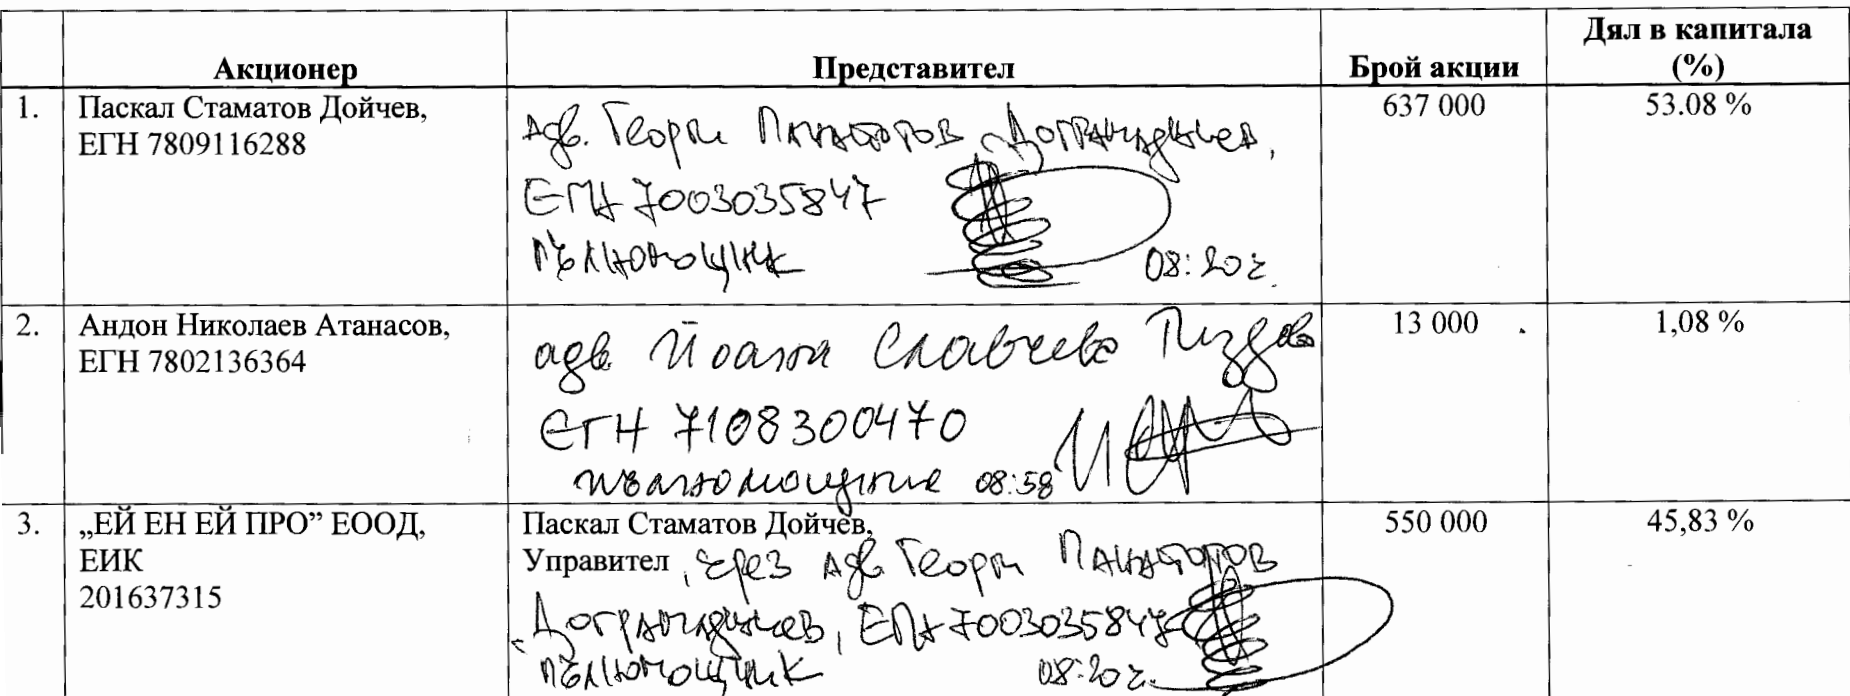 Акционер Представител Брой акции Дял в капитала (%)
1. Паскал Стаматов Дойчев, ЕГН 7809116288
адв. Георги Панайотов Дограмаджиев,
ЕГН 7003035847
пълномощник 08:20 ч.
637 000 53.08 %
2. Андон Николаев Атанасов, ЕГН 7802136364
адв Йоана Славчева
ЕГН 7108300470
пълномощник 08:58
13 000 1,08 %
3. „ЕЙ ЕН ЕЙ ПРО” ЕООД,
ЕИК
201637315
Паскал Стаматов Дойчев,
Управител, чрез адв Георги Панайотов
Дограмаджиев, ЕГН 7003035847
пълномощник 08:20 ч.
550 000 45,83 %